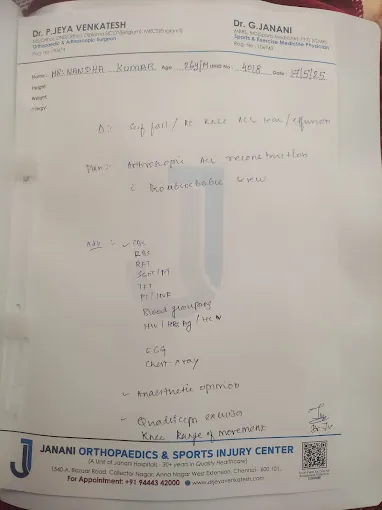 Dr. P.JEYA VENKATESH
Orthopaedic & Arthroscopic Surgeon
Dr. G.JANANI
Sports & Exercise Medicine Physician
Name: MR. NANDHA KUMAR Age 26y/M UHID No: 4018 Date 7/5/25
Height:
Weight:
Δ :- knee ACL tear / effusion
Plan :- Arthroscopic ACL reconstruction
c Bioabsorbable screw
Adv :- - CBC
RBS
RFT
TFT
PT/INR
Blood grouping
HIV / HBsAg / HCV
ECG
Chest xray
- Anaesthetic opinion
- Quadriceps exercise
Knee Range of movement
JANANI ORTHOPAEDICS & SPORTS INJURY CENTER
(A Unit of Janani Hospitals - 30+ years in Quality Healthcare)
1540 A, Bazaar Road, Collector Nagar, Anna Nagar West Extension, Chennai - 600 101.
For Appointment: +91 94443 42000 www.jejevavenkatesh.com